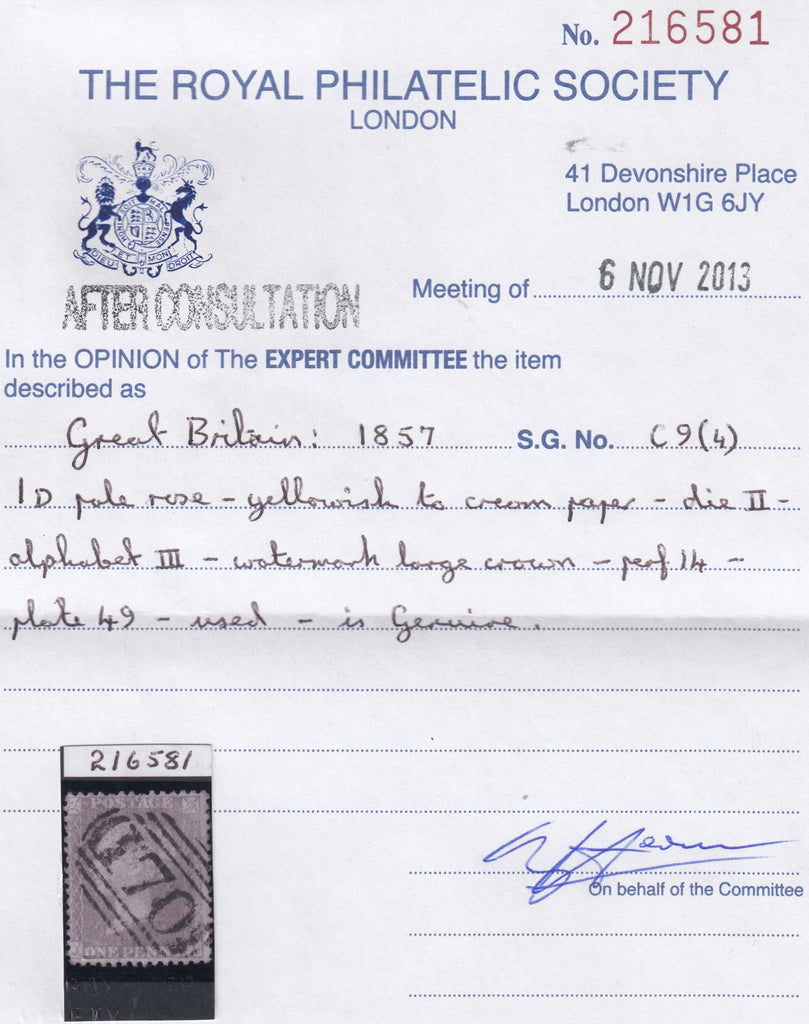 No. 216581
THE ROYAL PHILATELIC SOCIETY
LONDON
41 Devonshire Place
London W1G 6JY
DIEU ET MON DROIT
AFTER CONSULTATION
Meeting of 6 NOV 2013
In the OPINION of The EXPERT COMMITTEE the item
described as
Great Britain: 1857 S.G. No. C9(4)
1D pale rose - yellowish to cream paper - die II -
alphabet III - watermark large crown - perf 14 -
plate 49 - used - is Genuine.
216581
POSTAGE
170
ONE PENNY
On behalf of the Committee